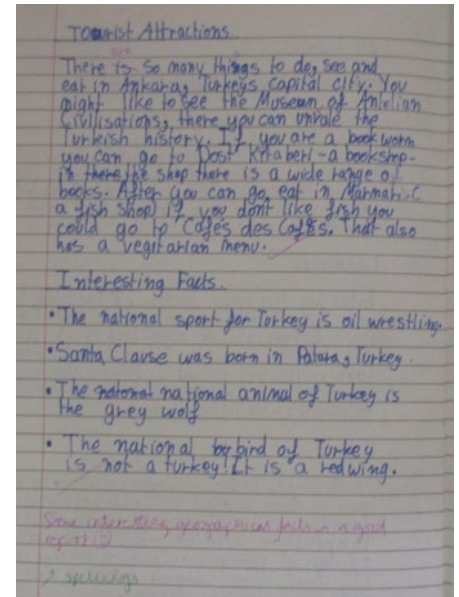 Tourist Attractions.
are
There is so many things to do, see and
eat in Ankara, Turkeys capital city. You
might like to see the Museum of Antolian
Civilisations, there you can unravle the
Turkish history. If you are a bookworm
you can go to Dost Kitaberi - a bookshop.
in there the shop there is a wide range of
books. After you can go eat in Marmaric
a fish shop if you dont like fish you
could go to Cafes des Cafes. That also
has a vegitarian menu.
Interesting Facts.
• The national sport for Turkey is oil wrestling.
• Santa Clause was born in Patara, Turkey.
• The national animal of Turkey is
the grey wolf
• The national bird of Turkey
is not a turkey! It is a redwing.
Some interesting geographical facts in a good
report
spellings